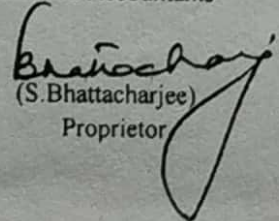 Bhattacharji
(S.Bhattacharjee)
Proprietor